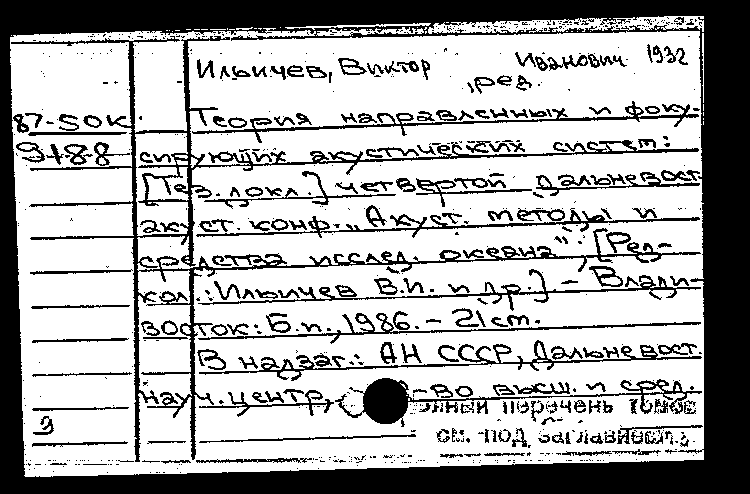 Ильичев, Виктор Иванович 1932
, ред.
87-50К. Теория направленных и фоку-
9188 сирующих акустических систем:
[Тез. докл.] четвертой дальневост.
акуст. конф. "Акуст. методы и
средства исслед. океана"; [Ред-
кол.: Ильичев В.И. и др.] - Влади-
восток: Б.и., 1986. - 21 ст.
В надзаг.: АН СССР, Дальневост.
науч. центр, -во высш. и сред.
перечень томов
9 см. под заглавием.